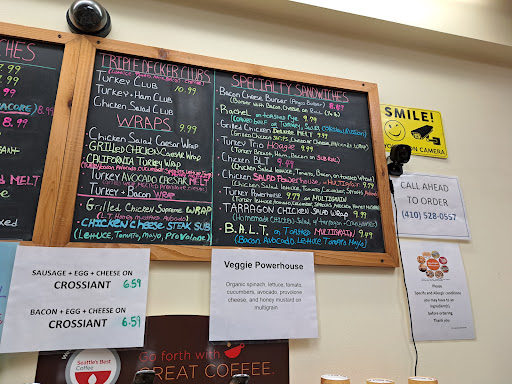 CHES
7.99
9.99
8.99
8.99
MELT
TRIPLE DECKER CLUBS
Turkey Club 10.99
Turkey + Ham Club
Chicken Salad Club
WRAPS 9.99
Chicken Salad Caesar Wrap
Grilled Chicken Caesar Wrap
CALIFORNIA Turkey Wrap
Turkey AVOCADO CAESAR MELT
Turkey + Bacon WRAP
Grilled Chicken Supreme WRAP
CHICKEN CHEESE STEAK SUB
(Lettuce, Tomato, Mayo, Provolone)
SPECIALTY SANDWICHES
Bacon Cheese Burger (Angus Burger) 8.49
Rachel on toasted Rye 9.99
Grilled Chicken Deluxe MELT 9.99
Turkey Trio Hoagie 9.99
(Turkey Breast, Ham, Bacon on SUB Roll)
Chicken BLT 9.99
(Chicken Salad, Lettuce, Tomato, Bacon, on toasted Wheat)
Chicken SALAD Powerhouse on MULTIGRAIN 9.99
Turkey Powerhouse 9.99 on MULTIGRAIN
TARRAGON CHICKEN SALAD WRAP 9.99
B.A.L.T. on Toasted MULTIGRAIN 9.49
(Bacon, Avocado, Lettuce, Tomato, Mayo)
SMILE!
YOU'RE ON CAMERA
CALL AHEAD
TO ORDER
(410) 528-0557
Please
Specify and Allergic conditions
you may have to an
ingredient(s)
before ordering.
Thank you.
SAUSAGE + EGG + CHEESE ON
CROSSIANT 6.59
BACON + EGG + CHEESE ON
CROSSIANT 6.59
Veggie Powerhouse
Organic spinach, lettuce, tomato,
cucumbers, avocado, provolone
cheese, and honey mustard on
multigrain
Seattle's Best
Coffee
Go forth with
GREAT COFFEE.